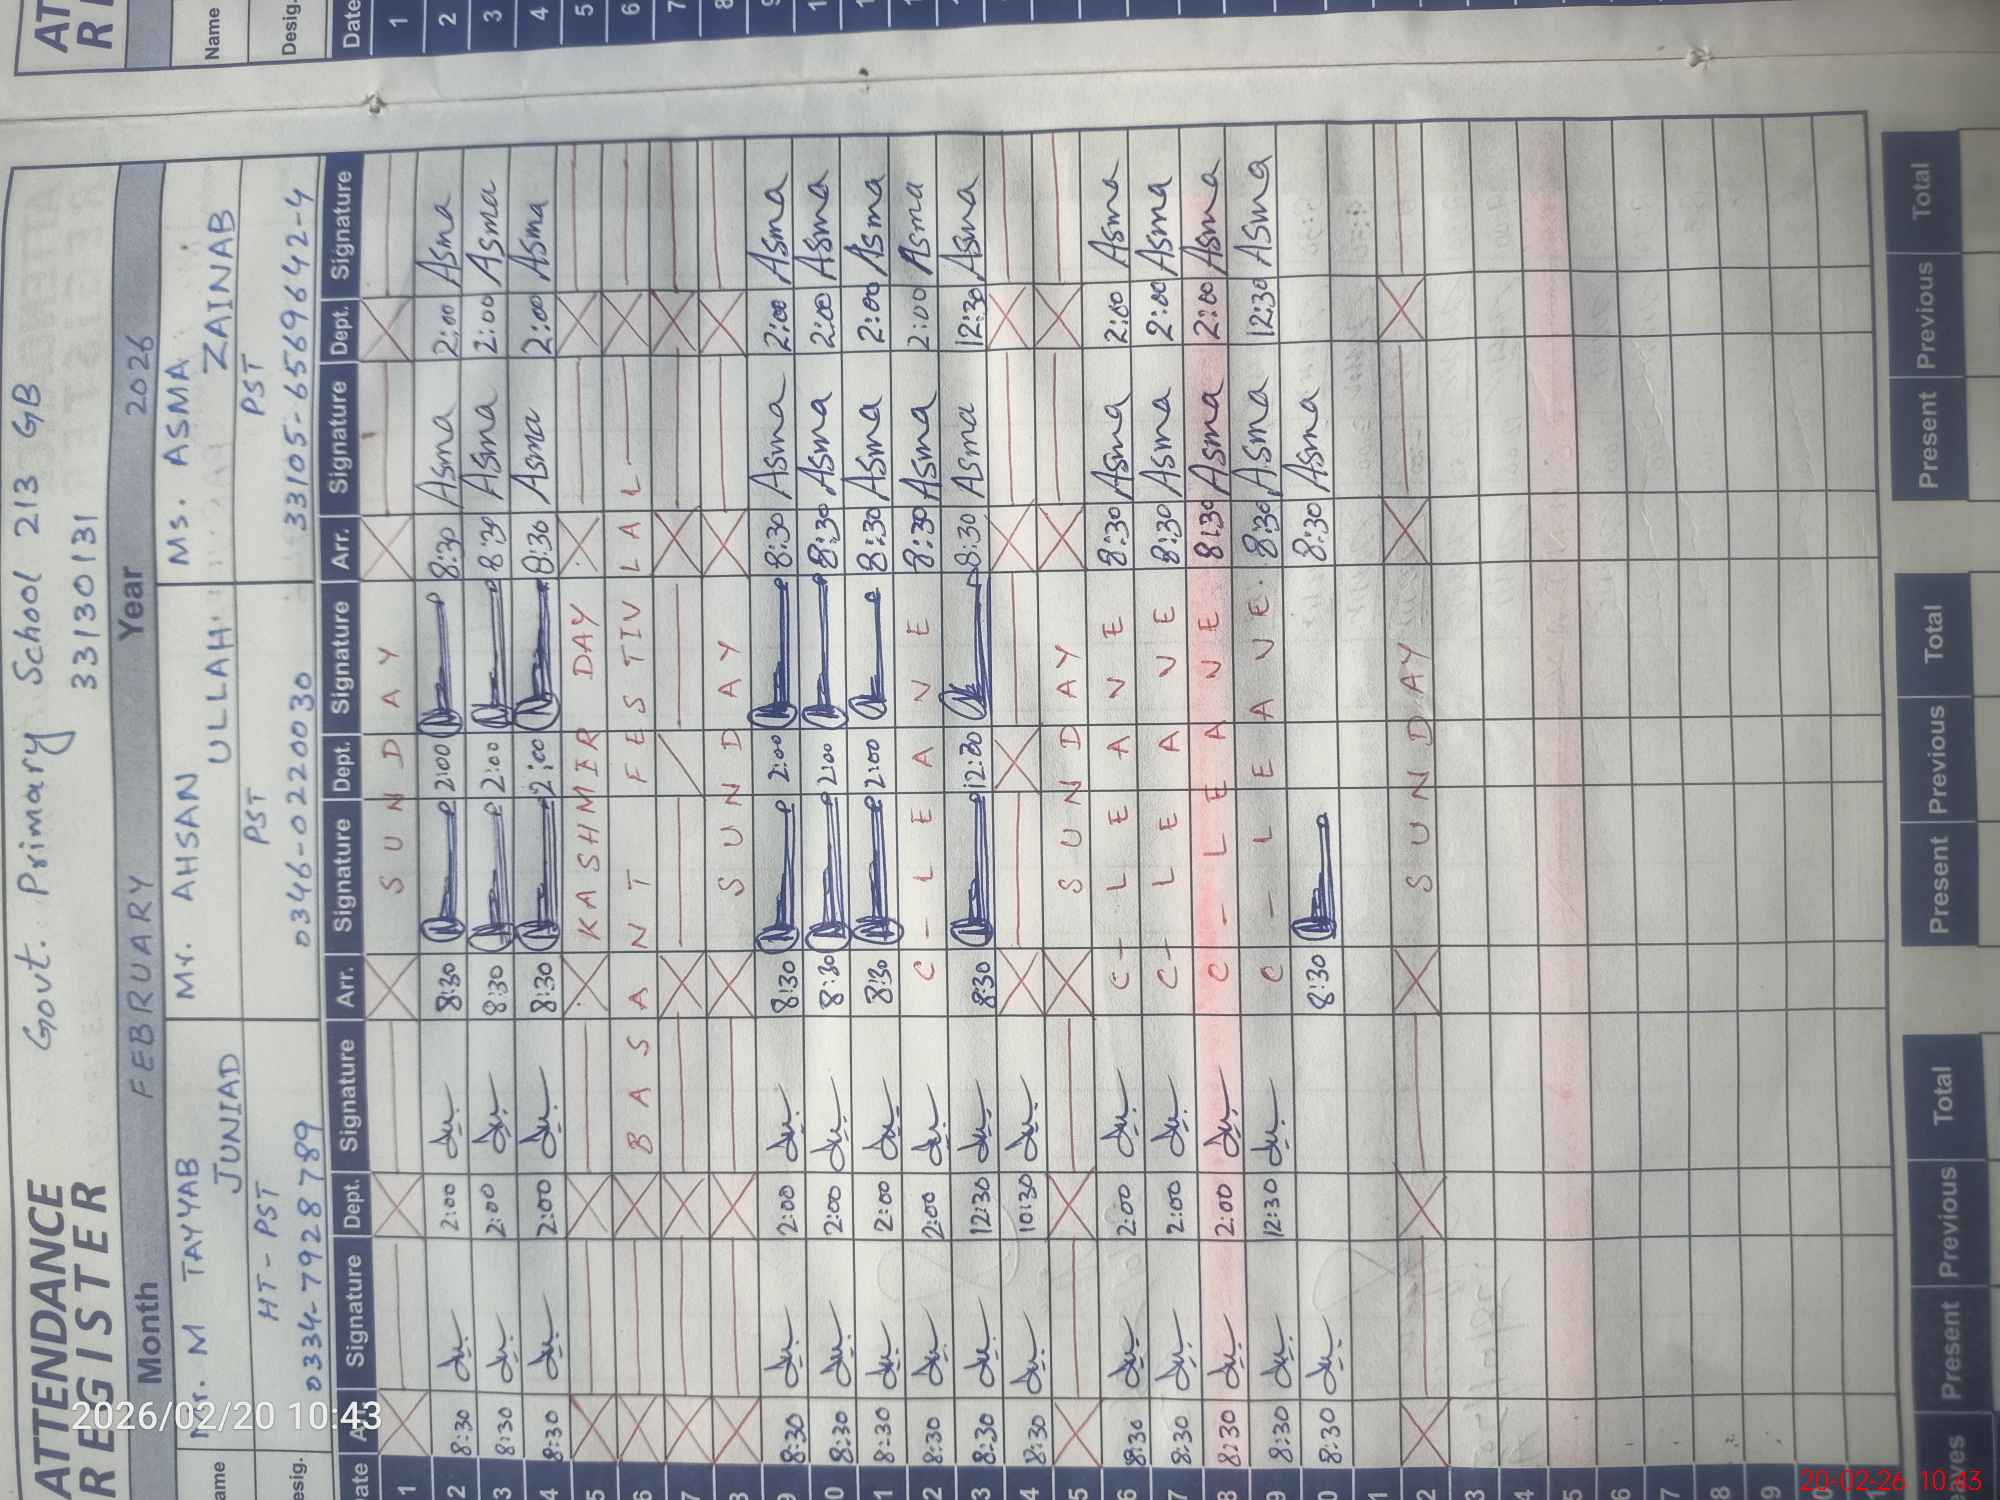 ATTENDANCE
REGISTER
Govt. Primary School 213 GB
33130131
Month FEBRUARY Year 2026
Name Mr. M TAYYAB JUNIAD Mr. AHSAN ULLAH Ms. ASMA ZAINAB
Desig. HT-PST PST PST
0334-7928789 0346-0220030 33105-6569642-4
Date Arr. Signature Dept. Signature Arr. Signature Dept. Signature Arr. Signature Dept. Signature
1 SUNDAY
2 8:30 2:00 8:30 2:00 8:30 Asma 2:00 Asma
3 8:30 2:00 8:30 2:00 8:30 Asma 2:00 Asma
4 8:30 2:00 8:30 2:00 8:30 Asma 2:00 Asma
5 KASHMIR DAY
6 BASANT FESTIVLAL
7
8 SUNDAY
9 8:30 2:00 8:30 2:00 8:30 Asma 2:00 Asma
10 8:30 2:00 8:30 2:00 8:30 Asma 2:00 Asma
11 8:30 2:00 8:30 2:00 8:30 Asma 2:00 Asma
12 8:30 2:00 C-LEAVE 8:30 Asma 2:00 Asma
13 8:30 12:30 8:30 12:30 8:30 Asma 12:30 Asma
14 8:30 10:30
15 SUNDAY
16 8:30 2:00 C-LEAVE 8:30 Asma 2:00 Asma
17 8:30 2:00 C-LEAVE 8:30 Asma 2:00 Asma
18 8:30 2:00 C-LEAVE 8:30 Asma 2:00 Asma
19 8:30 12:30 C-LEAVE. 8:30 Asma 12:30 Asma
20 8:30 8:30 8:30 Asma
21
22 SUNDAY
23
24
25
26
27
28
29
30
31
Leaves Present Previous Total Present Previous Total Present Previous Total
Name
Desig.
Date
1
2
3
4
5
6
7
8
2026/02/20 10:43
20-02-26 10:43